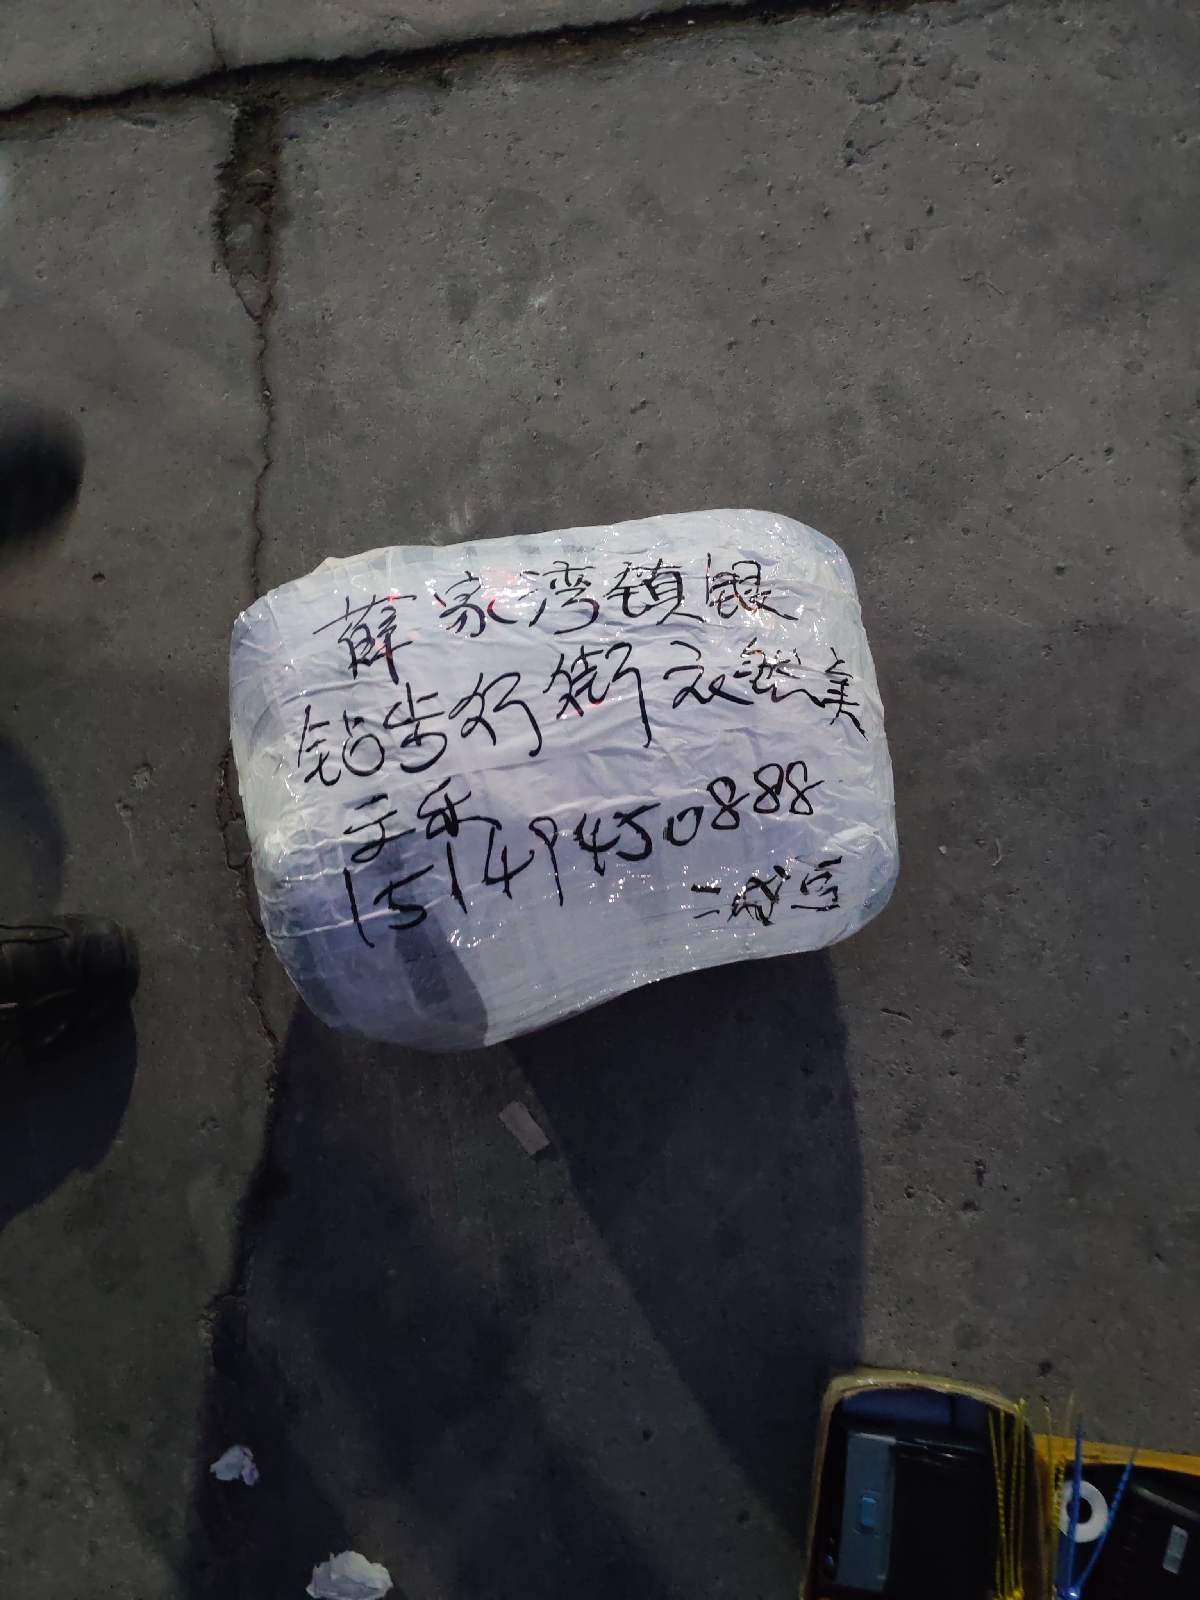 薛家湾镇银
钻步行街衣然美
于乐
15149450888
二成豆